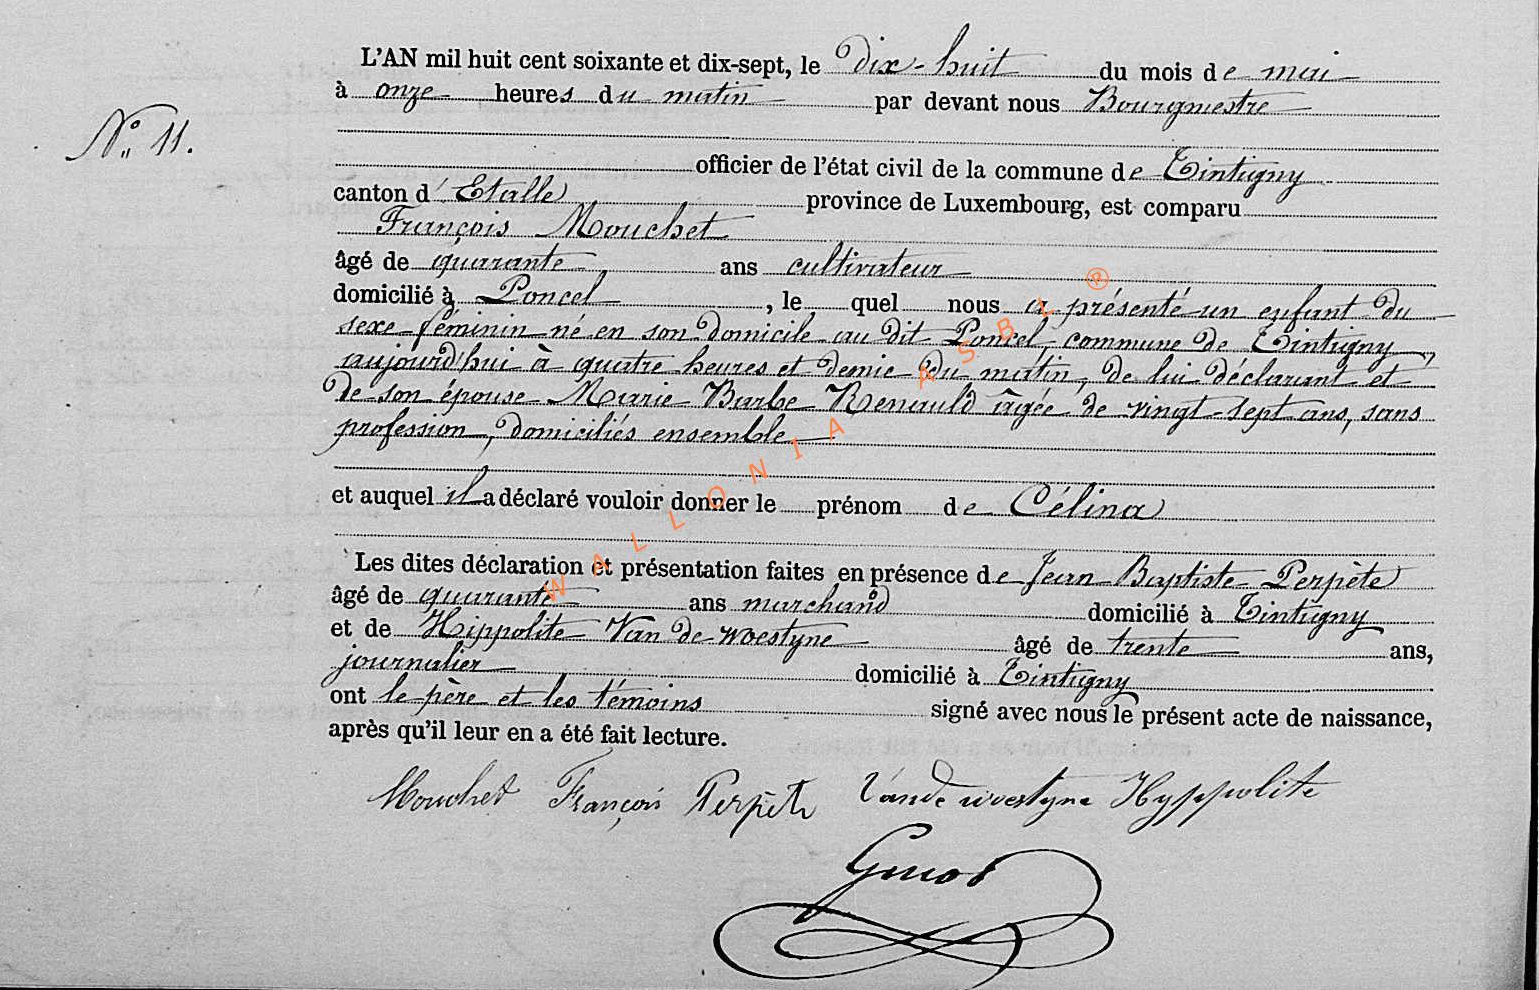 L'AN mil huit cent soixante et dix-sept, le dix-huit du mois de mai
à onze heures du matin par devant nous Bourgmestre
N° 11.
officier de l'état civil de la commune de Tintigny
canton d'Etalle province de Luxembourg, est comparu
François Mouchet
âgé de quarante ans cultivateur
domicilié à Poncel, le quel nous a présenté un enfant du
sexe féminin né en son domicile au dit Poncel, commune de Tintigny,
aujourd'hui à quatre heures et demie du matin, de lui déclarant et
de son épouse Marie Barbe Renauld âgée de vingt-sept ans, sans
profession, domiciliés ensemble
et auquel il a déclaré vouloir donner le prénom de Célina
Les dites déclaration et présentation faites en présence de Jean Baptiste Perpète
âgé de quarante ans marchand domicilié à Tintigny
et de Hippolite Van de woestyne âgé de trente ans,
journalier domicilié à Tintigny
ont le père et les témoins signé avec nous le présent acte de naissance,
après qu'il leur en a été fait lecture.
Mouchet François Perpète Vande woestyne Hyppolite
WALLONIA ASBL ®